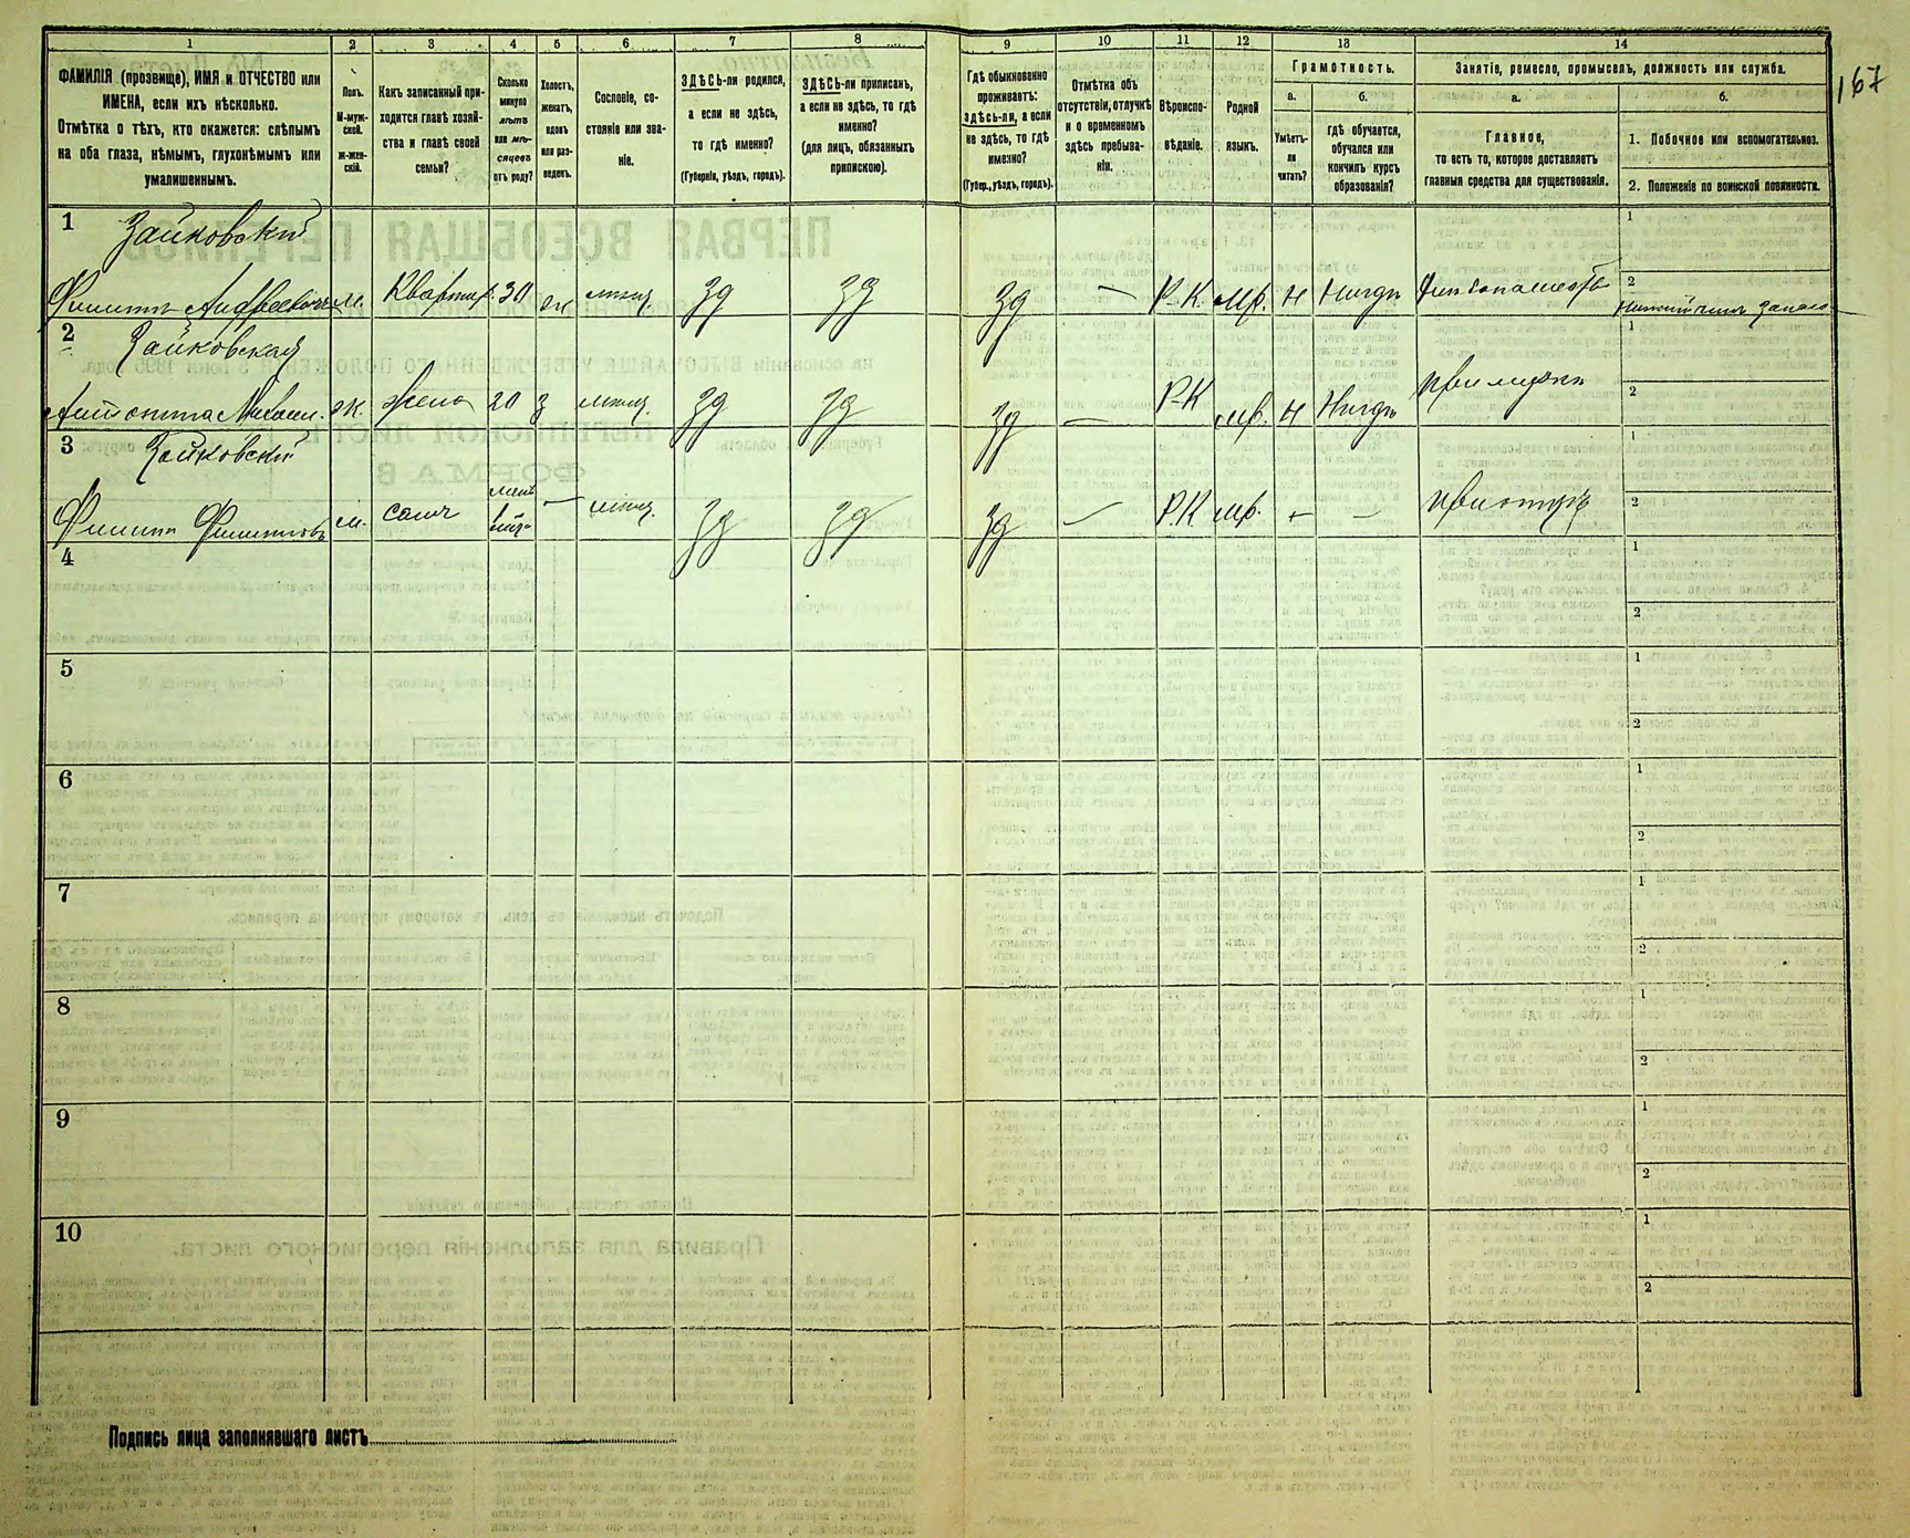 167
1 2 3 4 5 6 7 8 9 10 11 12 13 14
ФАМИЛІЯ (прозвище), ИМЯ и ОТЧЕСТВО или
ИМЕНА, если ихъ нѣсколько.
Отмѣтка о тѣхъ, кто окажется: слѣпымъ
на оба глаза, нѣмымъ, глухонѣмымъ или
умалишеннымъ.
Полъ.
М-муж-
ской.
ж-жен-
скій.
Какъ записанный при-
ходится главѣ хозяй-
ства и главѣ своей
семьи?
Сколько
минуло
лѣтъ
или мѣ-
сяцевъ
отъ роду?
Холостъ,
женатъ,
вдовъ
или раз-
веденъ.
Сословіе, со-
стояніе или зва-
ніе.
ЗДѢСЬ-ли родился,
а если не здѣсь,
то гдѣ именно?
(Губернія, уѣздъ, городъ).
ЗДѢСЬ-ли приписанъ,
а если не здѣсь, то гдѣ
именно?
(для лицъ, обязанныхъ
припискою).
Гдѣ обыкновенно
проживаетъ:
здѣсь-ли, а если
не здѣсь, то гдѣ
именно?
(Губер., уѣздъ, городъ).
Отмѣтка объ
отсутствіи, отлучкѣ
и о временномъ
здѣсь пребыва-
ніи.
Вѣроиспо-
вѣданіе.
Родной
языкъ.
Грамотность.
а.
Умѣетъ-
ли
читать?
б.
гдѣ обучается,
обучался или
кончилъ курсъ
образованія?
Занятіе, ремесло, промыселъ, должность или служба.
а.
Главное,
то есть то, которое доставляетъ
главныя средства для существованія.
б.
1. Побочное или вспомогательное.
2. Положеніе по воинской повинности.
1 Зайковскій 1
Филиппъ Андреевичъ м. Квартир. 30 ж мѣщ. зд зд зд — Р.К. н Нигдѣ 2
2 Зайковская 1
Михаил. ж. жена 20 з мѣщ. зд зд зд — Р-К н Нигдѣ при мужѣ 2
3 Зайковскій 1
Филипп Филипповъ м. сынъ — мѣщ. зд зд зд — Р.К — — при отцѣ 2
4 1
2
5 1
2
6 1
2
7 1
2
8 1
2
9 1
2
10 1
2
Подпись лица заполнявшаго листъ